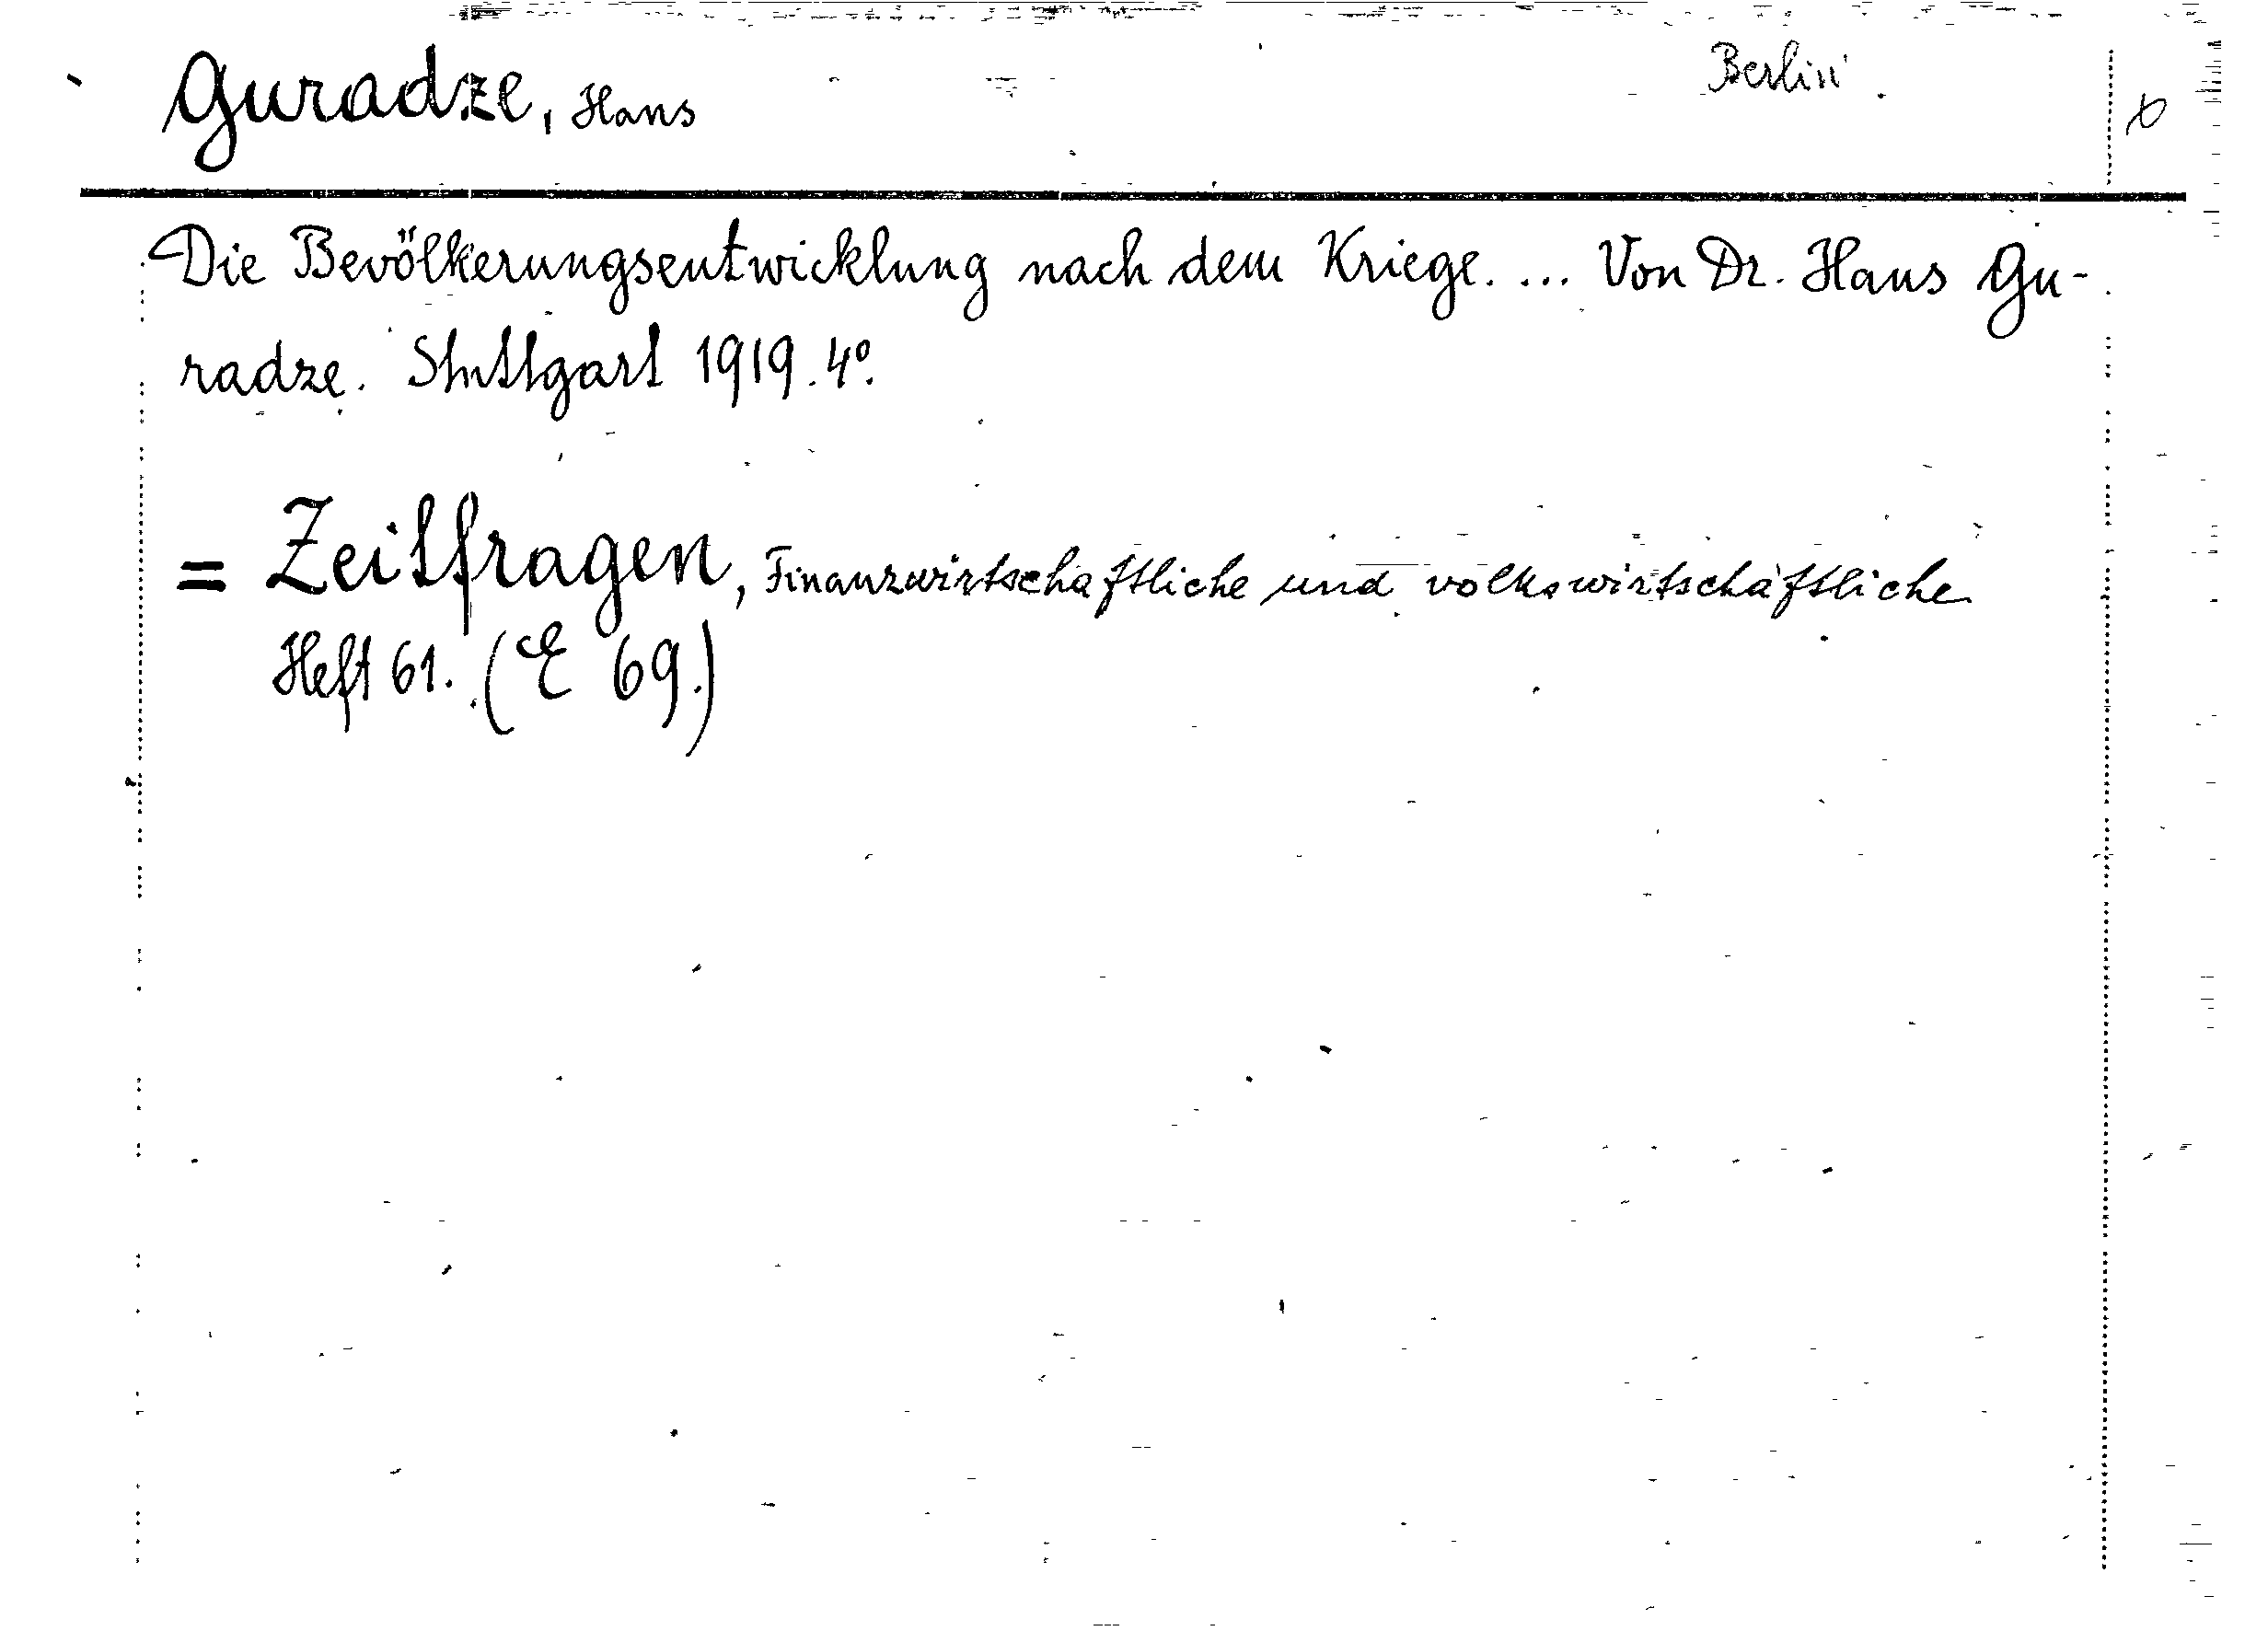 Guradze, Hans
Berlin.
Die Bevölkerungsentwicklung nach dem Kriege. ... Von Dr. Hans Gu-
radze. Stuttgart 1919. 4°.
= Zeitfragen, Finanzwirtschaftliche und volkswirtschaftliche
Heft 61. (E 69.)